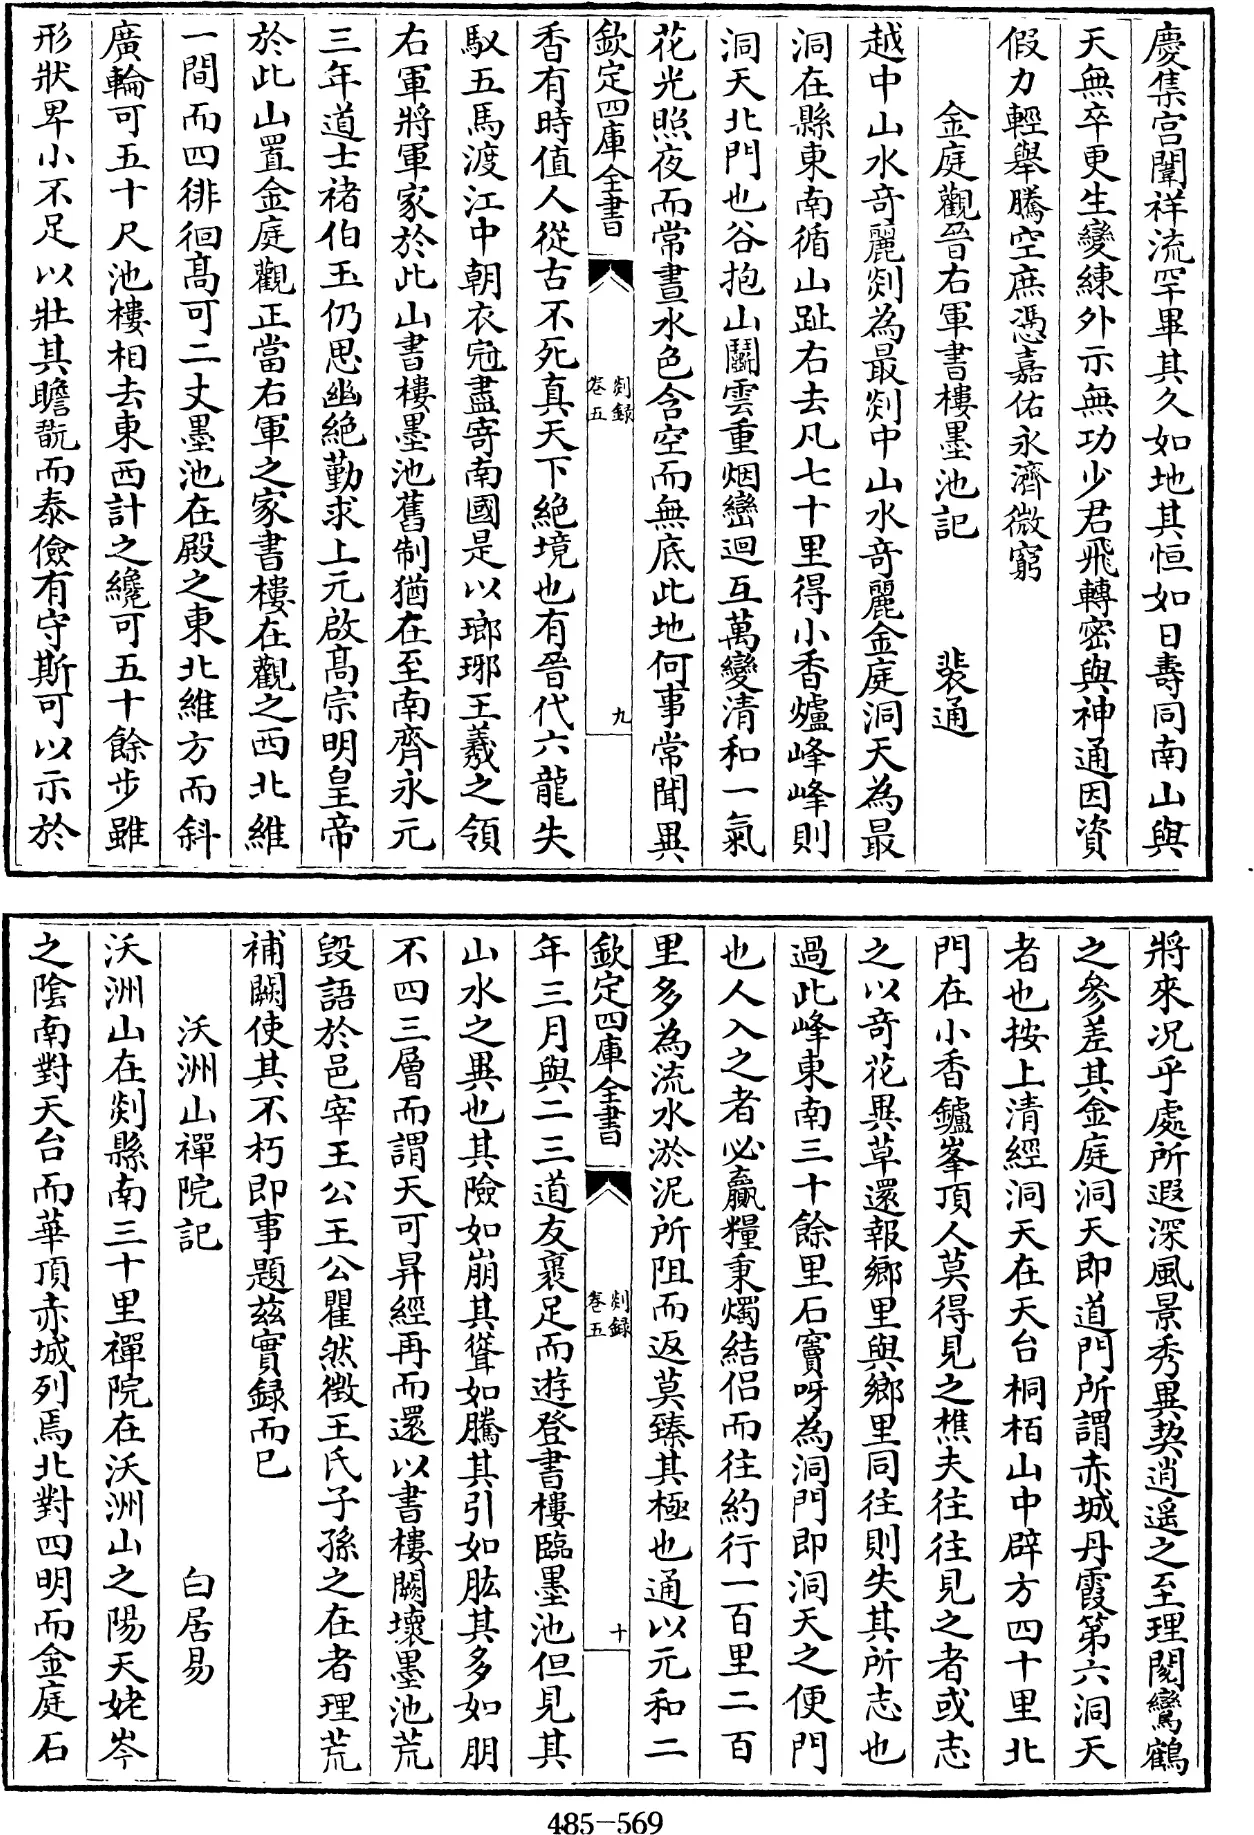 慶集宫闈祥流罕畢其久如地其恒如日壽同南山與
天無卒更生變練外示無功少君飛轉密與神通因資
假力輕舉騰空庶憑嘉佑永濟微窮
金庭觀晉右軍書樓墨池記 裴通
越中山水奇麗剡為最剡中山水奇麗金庭洞天為最
洞在縣東南循山趾右去凡七十里得小香爐峰峰則
洞天北門也谷抱山鬬雲重烟巒迴互萬變清和一氣
花光照夜而常晝水色含空而無底此地何事常聞異
欽定四庫全書 剡録 卷五 九
香有時值人從古不死真天下絶境也有晉代六龍失
馭五馬渡江中朝衣冠盡寄南國是以瑯琊王羲之領
右軍將軍家於此山書樓墨池舊制猶在至南齊永元
三年道士褚伯玉仍思幽絶勤求上元啟髙宗明皇帝
於此山置金庭觀正當右軍之家書樓在觀之西北維
一間而四徘徊髙可二丈墨池在殿之東北維方而斜
廣輪可五十尺池樓相去東西計之纔可五十餘步雖
形狀卑小不足以壯其瞻翫而泰儉有守斯可以示於
將來况乎處所遐深風景秀異契逍遥之至理閲鸞鶴
之參差其金庭洞天即道門所謂赤城丹霞第六洞天
者也按上清經洞天在天台桐栢山中辟方四十里北
門在小香鑪峯頂人莫得見之樵夫往往見之者或志
之以奇花異草還報鄉里與鄉里同往則失其所志也
過此峰東南三十餘里石竇呀為洞門即洞天之便門
也人入之者必贏糧秉燭結侣而往約行一百里二百
里多為流水淤泥所阻而返莫臻其極也通以元和二
欽定四庫全書 剡録 卷五 十
年三月與二三道友裹足而遊登書樓臨墨池但見其
山水之異也其險如崩其聳如騰其引如肱其多如朋
不四三層而謂天可昇經再而還以書樓闕壞墨池荒
毁語於邑宰王公王公瞿然徵王氏子孫之在者理荒
補闕使其不朽即事題兹實録而已
沃洲山禪院記 白居易
沃洲山在剡縣南三十里禪院在沃洲山之陽天姥岑
之陰南對天台而華頂赤城列焉北對四明而金庭石
485-569